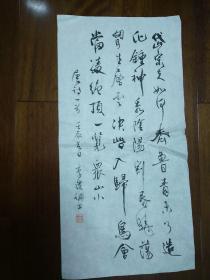 岱宗夫如何齊魯青未了造
化鍾神秀陰陽割昏曉蕩
胸生層雲決眥入歸鳥會
當凌絕頂一覽衆山小
唐詩一首